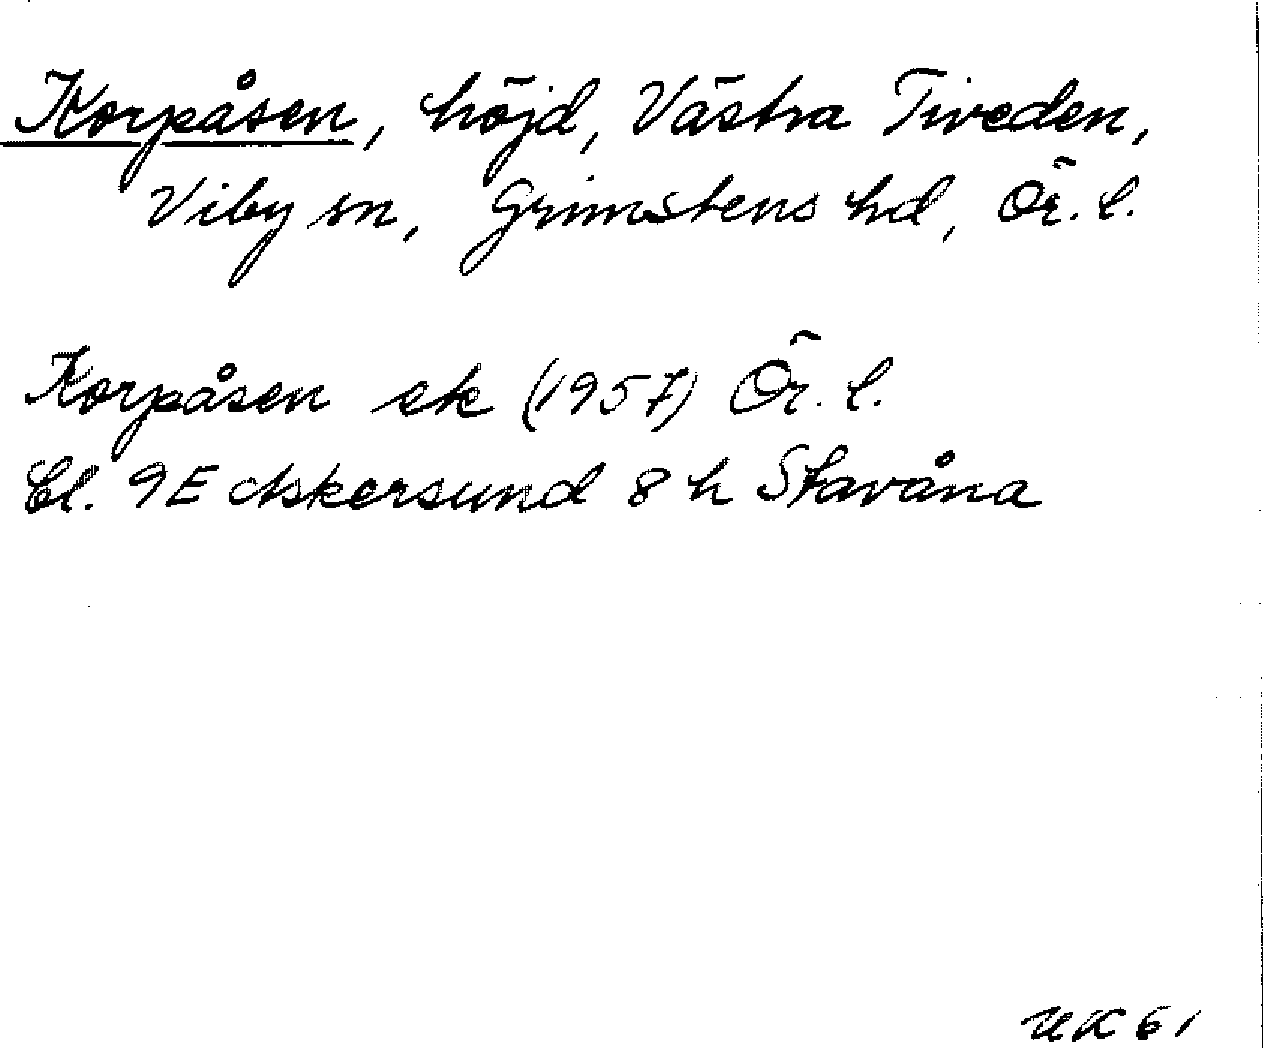 Korpåsen, höjd, Västra Tiveden,
Viby sn, Grimstens hd, Ör. l.
Korpåsen ek (1957) Ör. l.
Bl. 9E Askersund 8 h Stavåna
UK 61